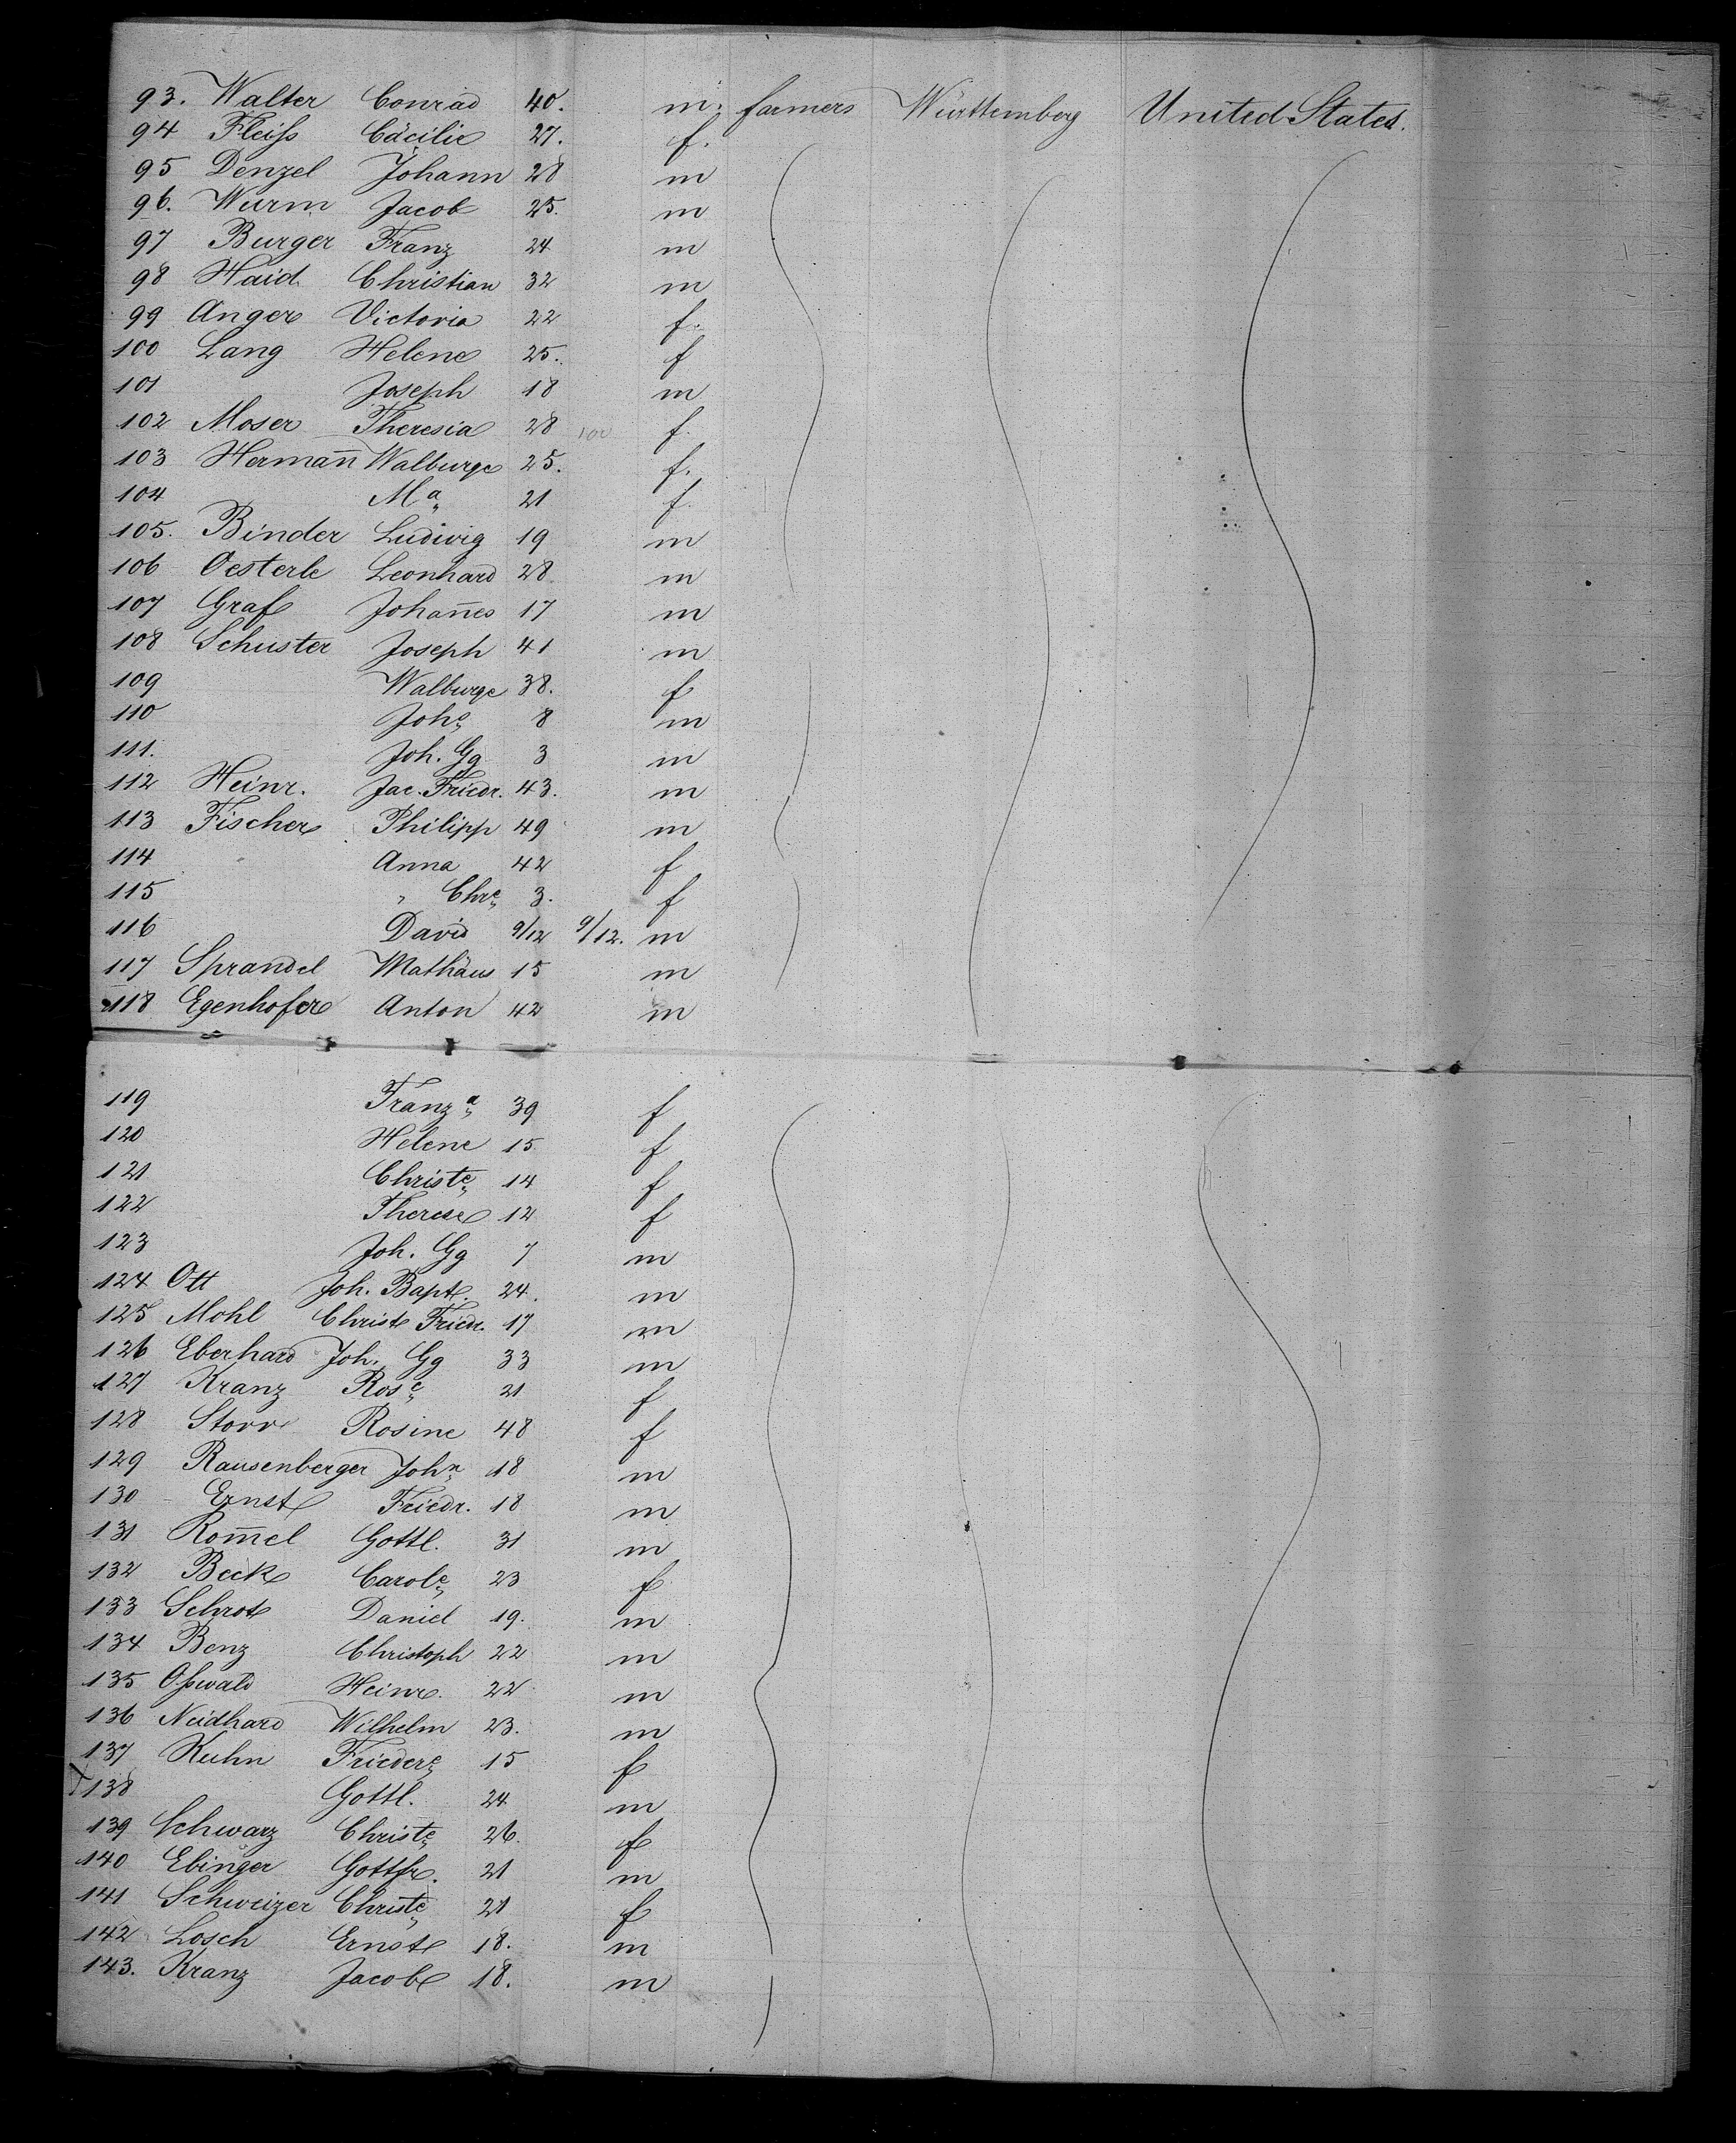 93. Walter Conrad 40. m. farmers Württemberg United States.
94 Fleiss Cäcilie 27. f.
95 Denzel Johann 28 m
96. Wurm Jacob 25. m
97 Burger Franz 24 m
98 Haid Christian 32 m
99 Anger Victoria 22 f.
100 Lang Helene 25. f
101 Joseph 18 m
102 Moser Theresia 28 100 f.
103 Herman̄ Walburge 25. f.
104 Mª 21 f.
105. Binder Ludwig 19 m
106 Oesterle Leonhard 28. m
107 Graf Johan̄es 17 m
108 Schuster Joseph 41 m
109 Walburge 38. f
110 Johᵉ 8 m
111. Joh. Gg 3 m
112 Heinr. Jac. Friedr. 43. m
113 Fischer Philipp 49 m
114 Anna 42 f
115 " Chrᵉ 3. f
116 David 9/12 9/12. m
117 Sprandel Mathäus 15 m
118 Egenhofer Anton 42 m
119 Franzª 39 f
120 Helene 15 f
121 Christᵉ 14 f
122 Therese 12 f
123 Joh. Gg 7 m
124 Ott Joh. Bapt. 24. m
125 Mohl Christ Friedr. 17 m
126 Eberhard Joh. Gg 33 m
127 Kranz Rosᵉ 21 f
128 Storr Rosine 48 f
129 Rausenberger Johⁿ 18 m
130 Ernst Friedr. 18 m
131 Rom̄el Gottl. 31 m
132 Beck Carolᵉ 23 f
133 Schrot Daniel 19. m
134 Benz Christoph 22 m
135 Osswald Heinr. 22 m
136 Neidhard Wilhelm 23. m
137 Kuhn Friederᵉ 15 f
138 Gottl. 24 m
139 Schwarz Christᵉ 26. f
140 Ebinger Gottfr. 21 m
141 Schweizer Christᵉ 21 f
142 Losch Ernst 18. m
143. Kranz Jacob 18. m